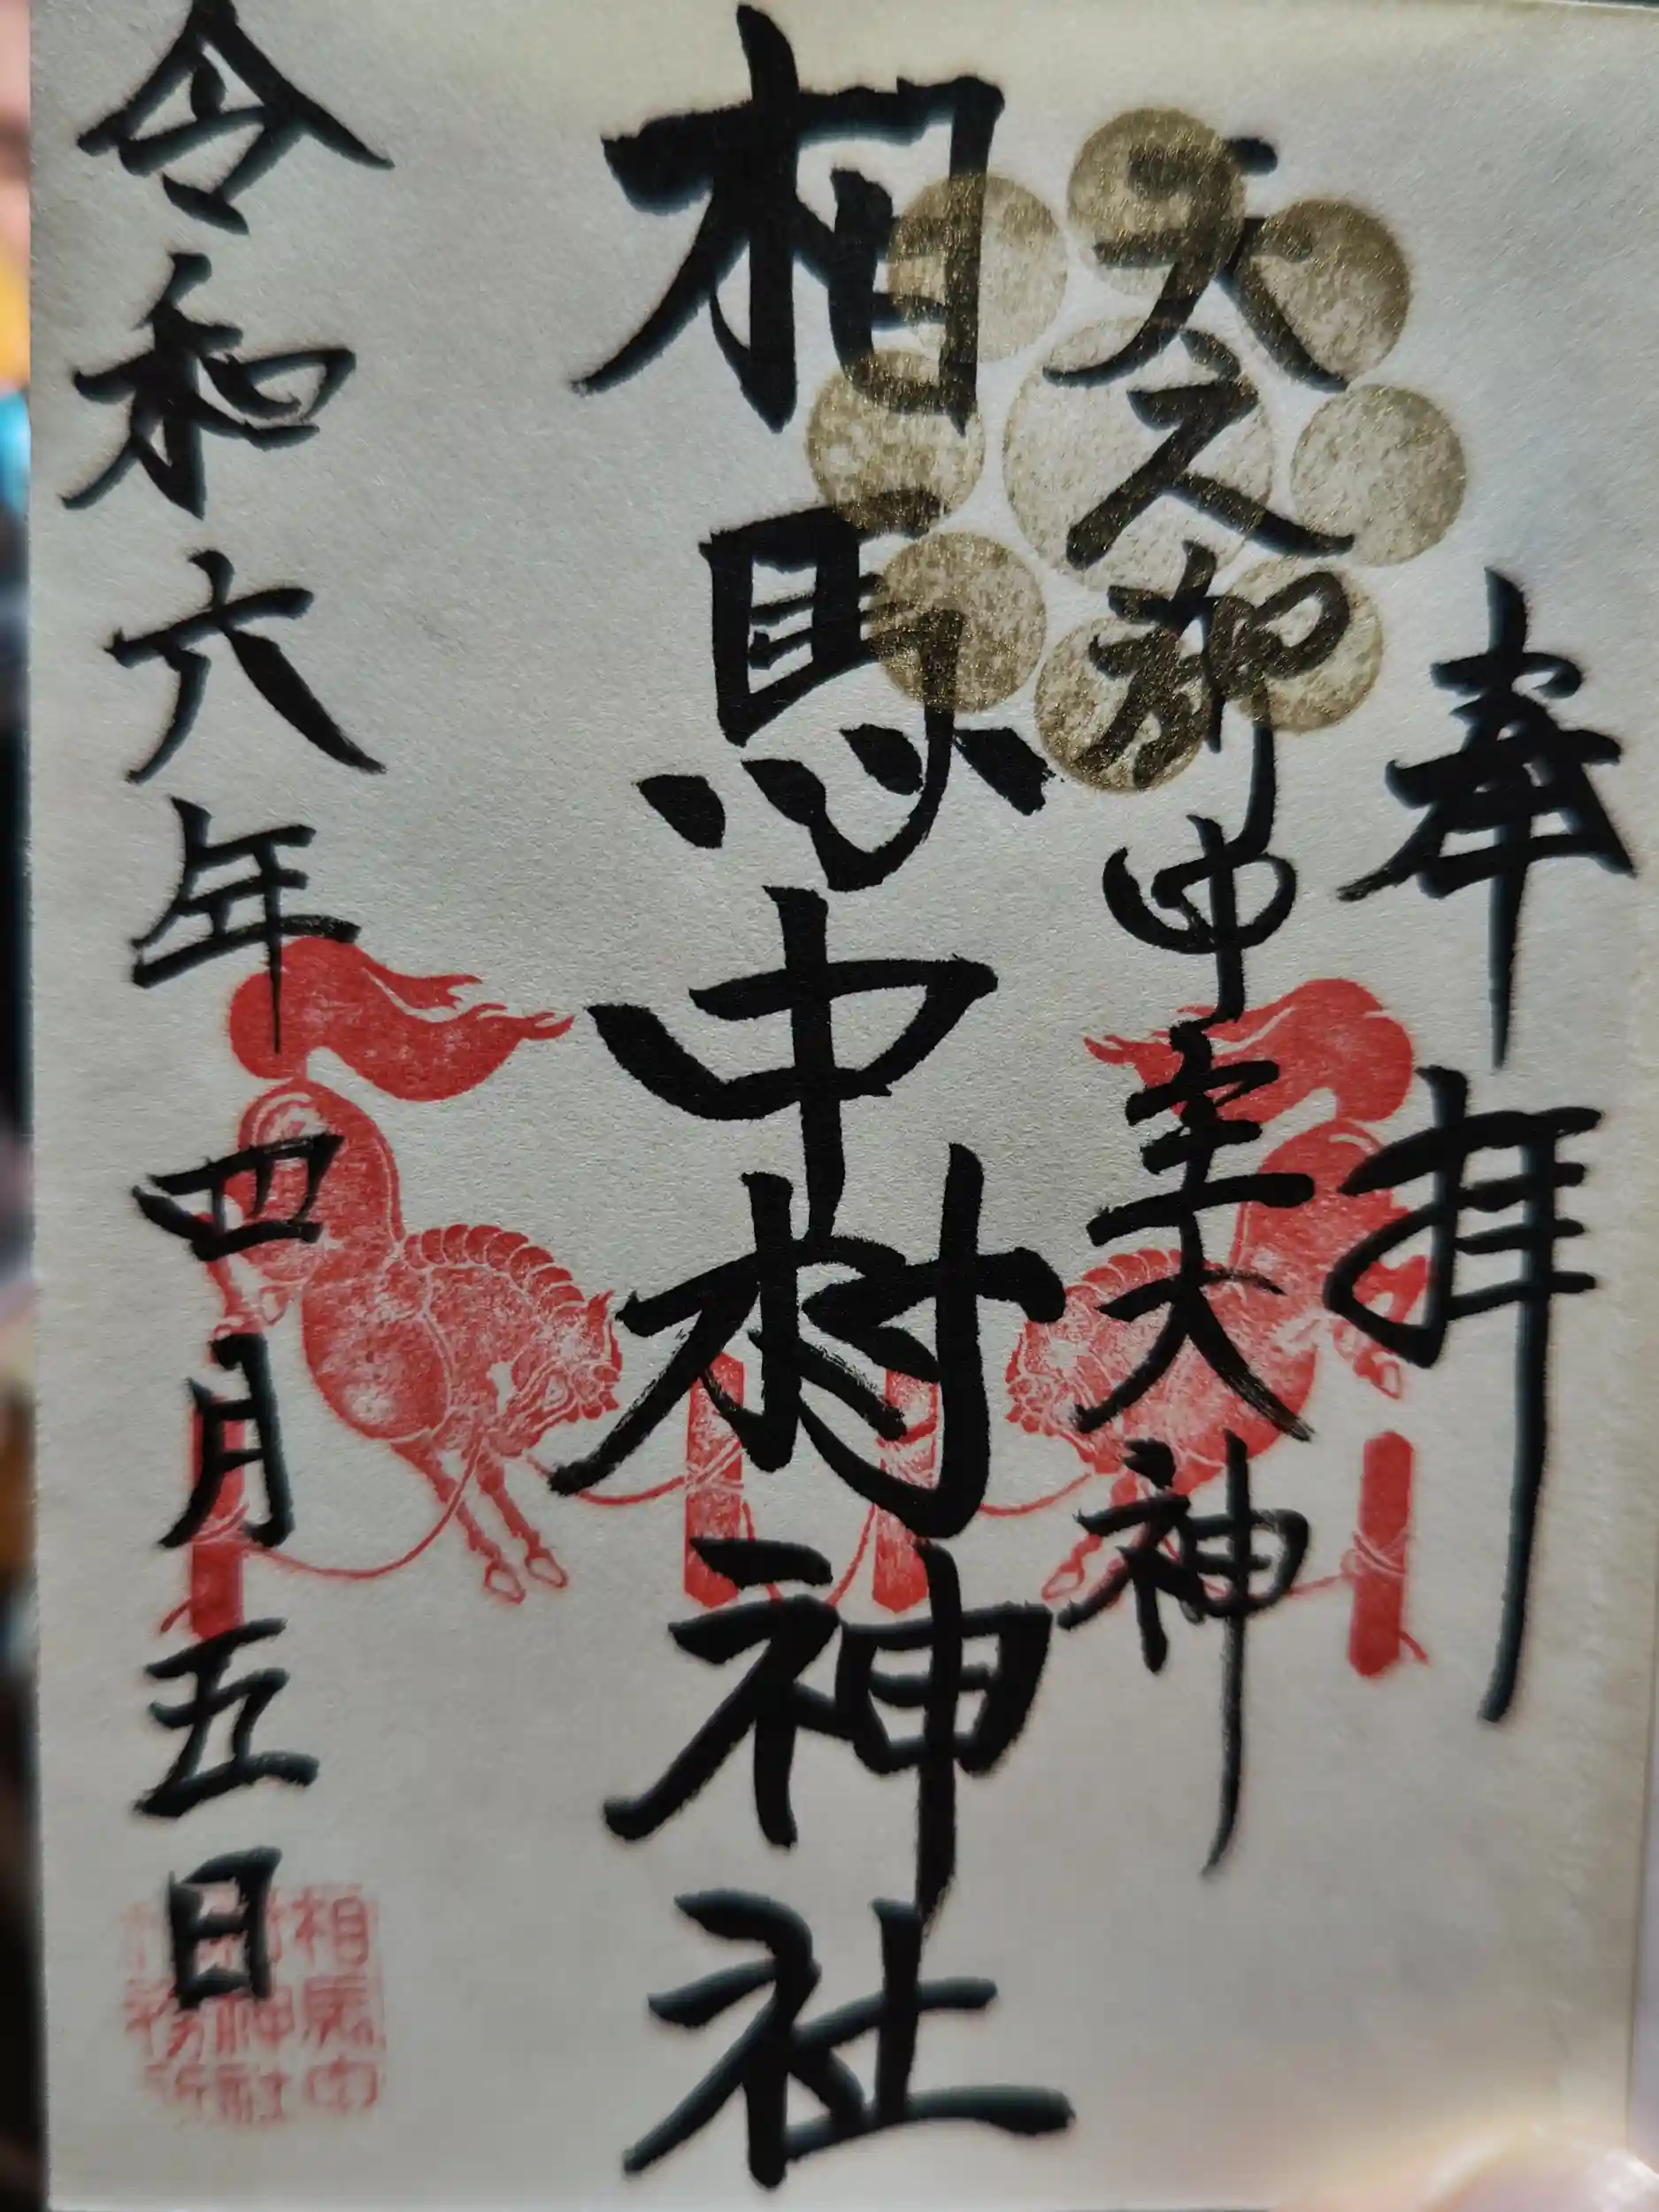 奉拝
天之御中主大神
相馬中村神社
令和六年四月五日
相馬中
村神社
務所